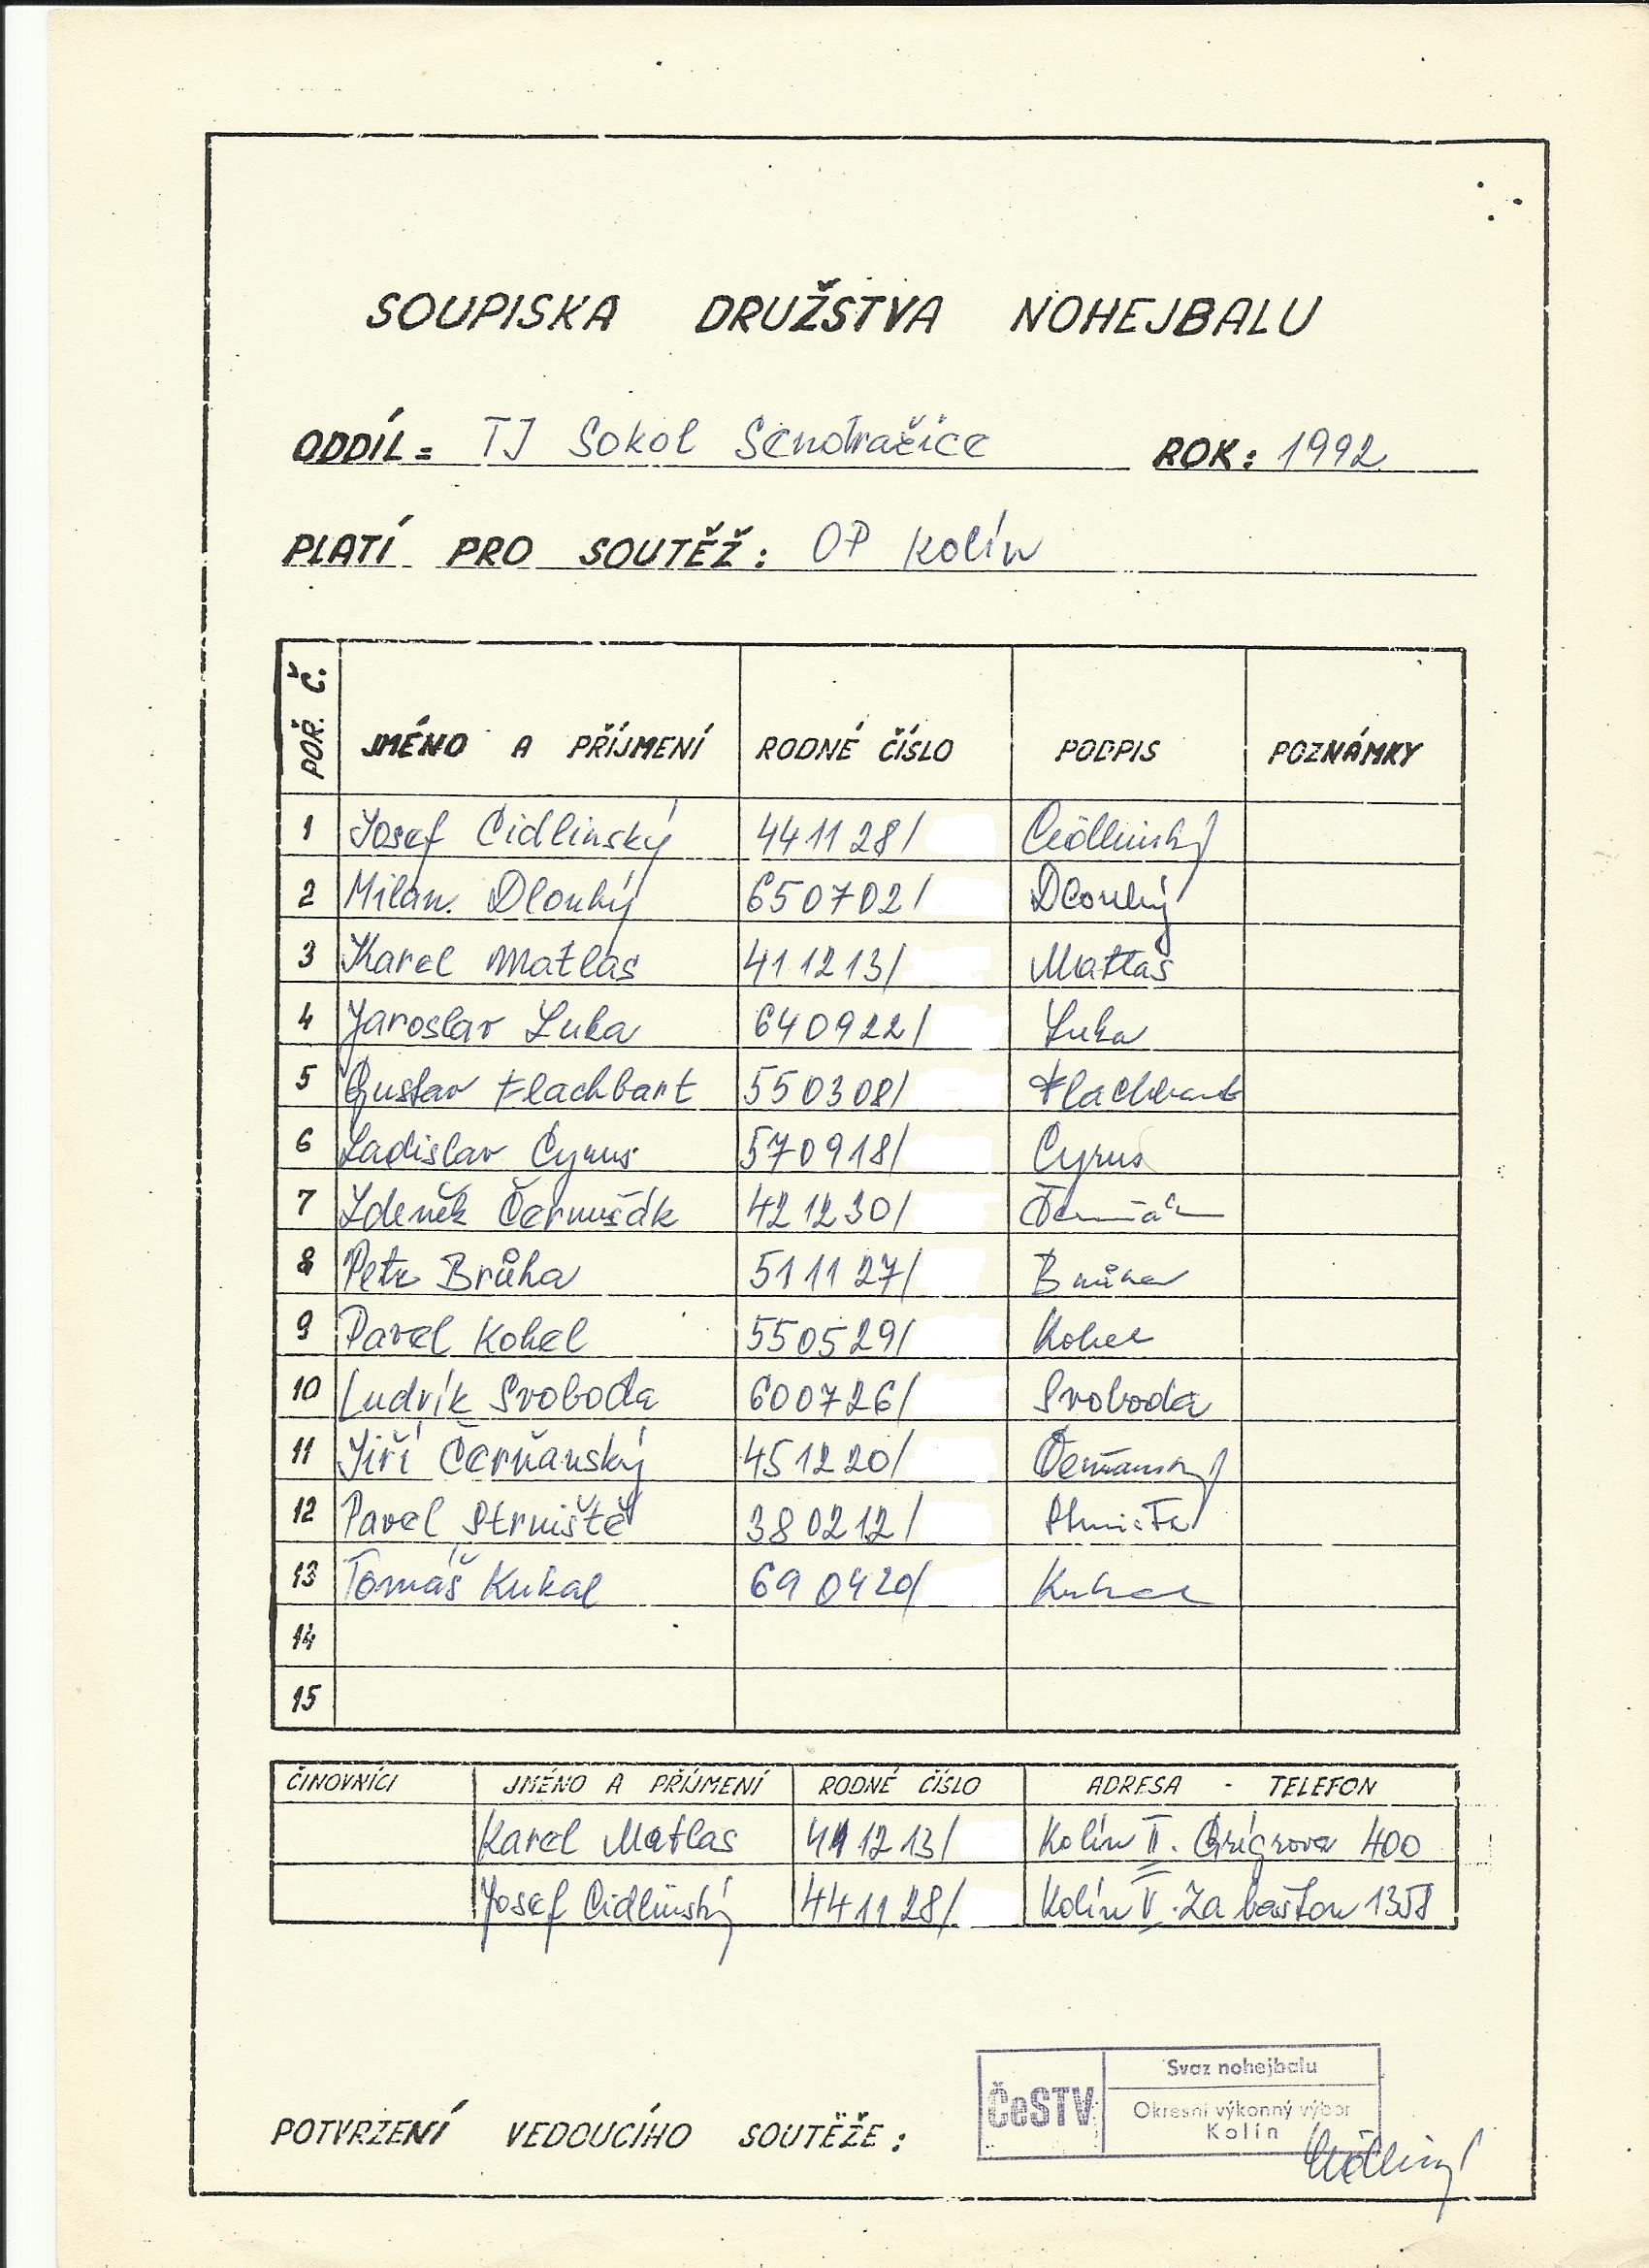 SOUPISKA DRUŽSTVA NOHEJBALU
ODDÍL: TJ Sokol Sendražice ROK: 1992
PLATÍ PRO SOUTĚŽ: OP Kolín
POŘ. Č. JMÉNO A PŘÍJMENÍ RODNÉ ČÍSLO PODPIS POZNÁMKY
1 Josef Cidlinský 441128/ Cidlinský
2 Milan Dlouhý 650702/ Dlouhý
3 Karel Matlas 411213/ Matlas
4 Jaroslav Luka 640922/ Luka
5 Gustav Flachbart 550308/ Flachbart
6 Ladislav Cyrus 570918/ Cyrus
7 Zdeněk Černušák 421230/
8 Petr Brůha 511127/ Brůha
9 Pavel Kohel 550529/ Kohel
10 Ludvík Svoboda 600726/ Svoboda
11 Jiří Čerňanský 451220/ Čerňanský
12 Pavel Strniště 380212/
13 Tomáš Kukal 690420/ Kukal
14
15
ČINOVNÍCI JMÉNO A PŘÍJMENÍ RODNÉ ČÍSLO ADRESA - TELEFON
Karel Matlas 411213/ Kolín II. Grégrova 400
Josef Cidlinský 441128/ Kolín V. Za baštou 1358
ČeSTV Svaz nohejbalu
Okresní výkonný výbor
Kolín
POTVRZENÍ VEDOUCÍHO SOUTĚŽE: Cidlinský